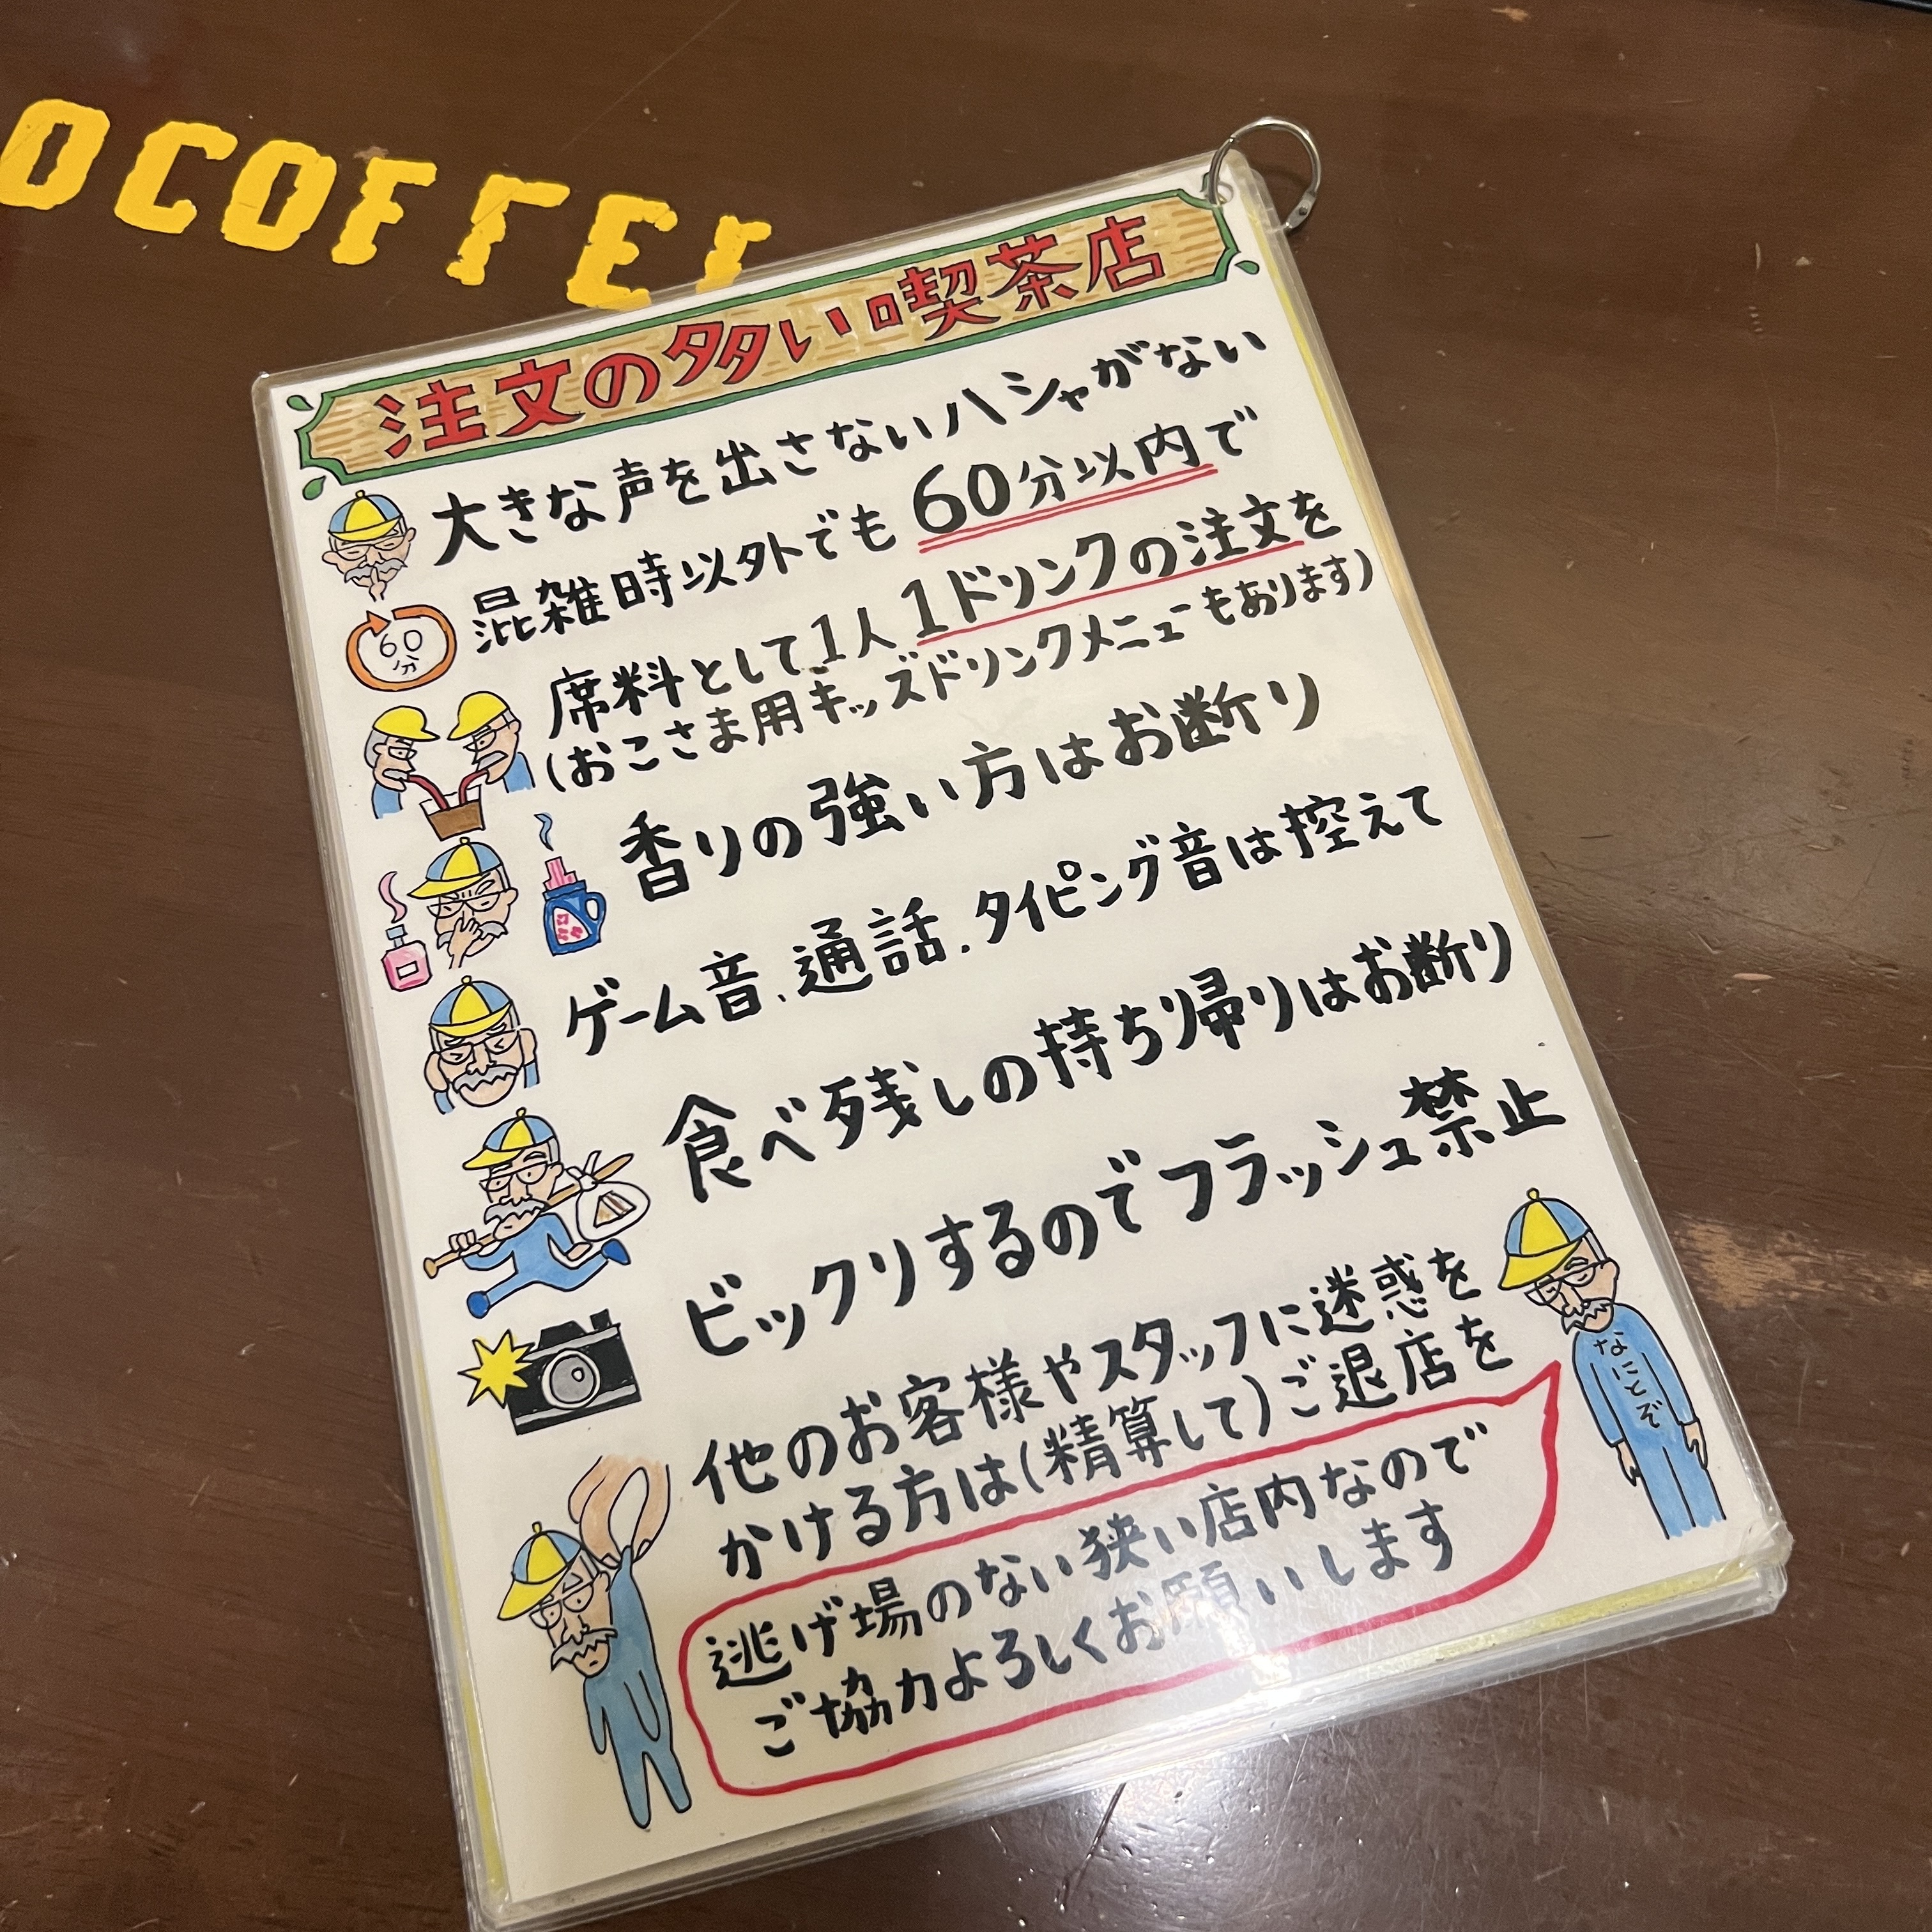 OCOFFEE
注文の多い喫茶店
大きな声を出さないハシャがない
60分
混雑時以外でも60分以内で
席料として1人1ドリンクの注文を
(おこさま用キッズドリンクメニューもあります)
香りの強い方はお断り
ゲーム音、通話、タイピング音は控えて
食べ残しの持ち帰りはお断り
ビックリするのでフラッシュ禁止
他のお客様やスタッフに迷惑を
かける方は(精算して)ご退店を
なにとぞ
逃げ場のない狭い店内なので
ご協力よろしくお願いします